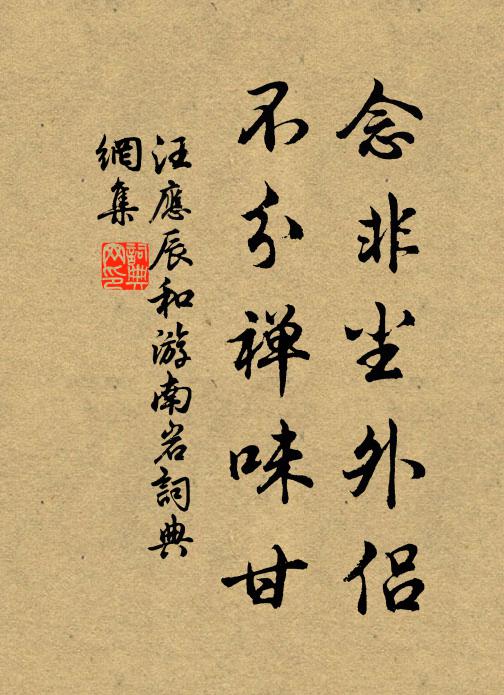 念非尘外侣
不分禅味甘
汪應辰和游南岩詞典
網集
詞典
网印